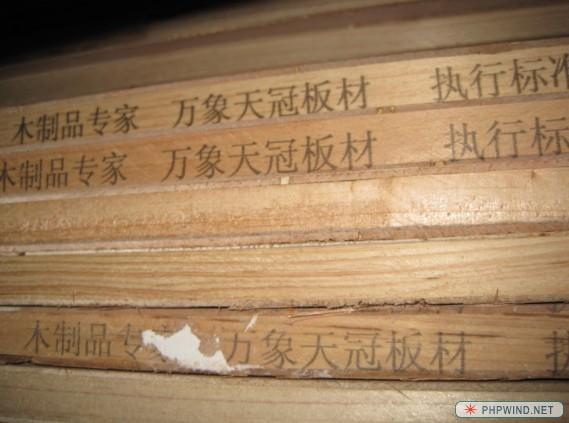 木制品专家 万象天冠板材 执行标准
木制品专家 万象天冠板材 执行标
木制品专家 万象天冠板材 执
PHPWIND.NET